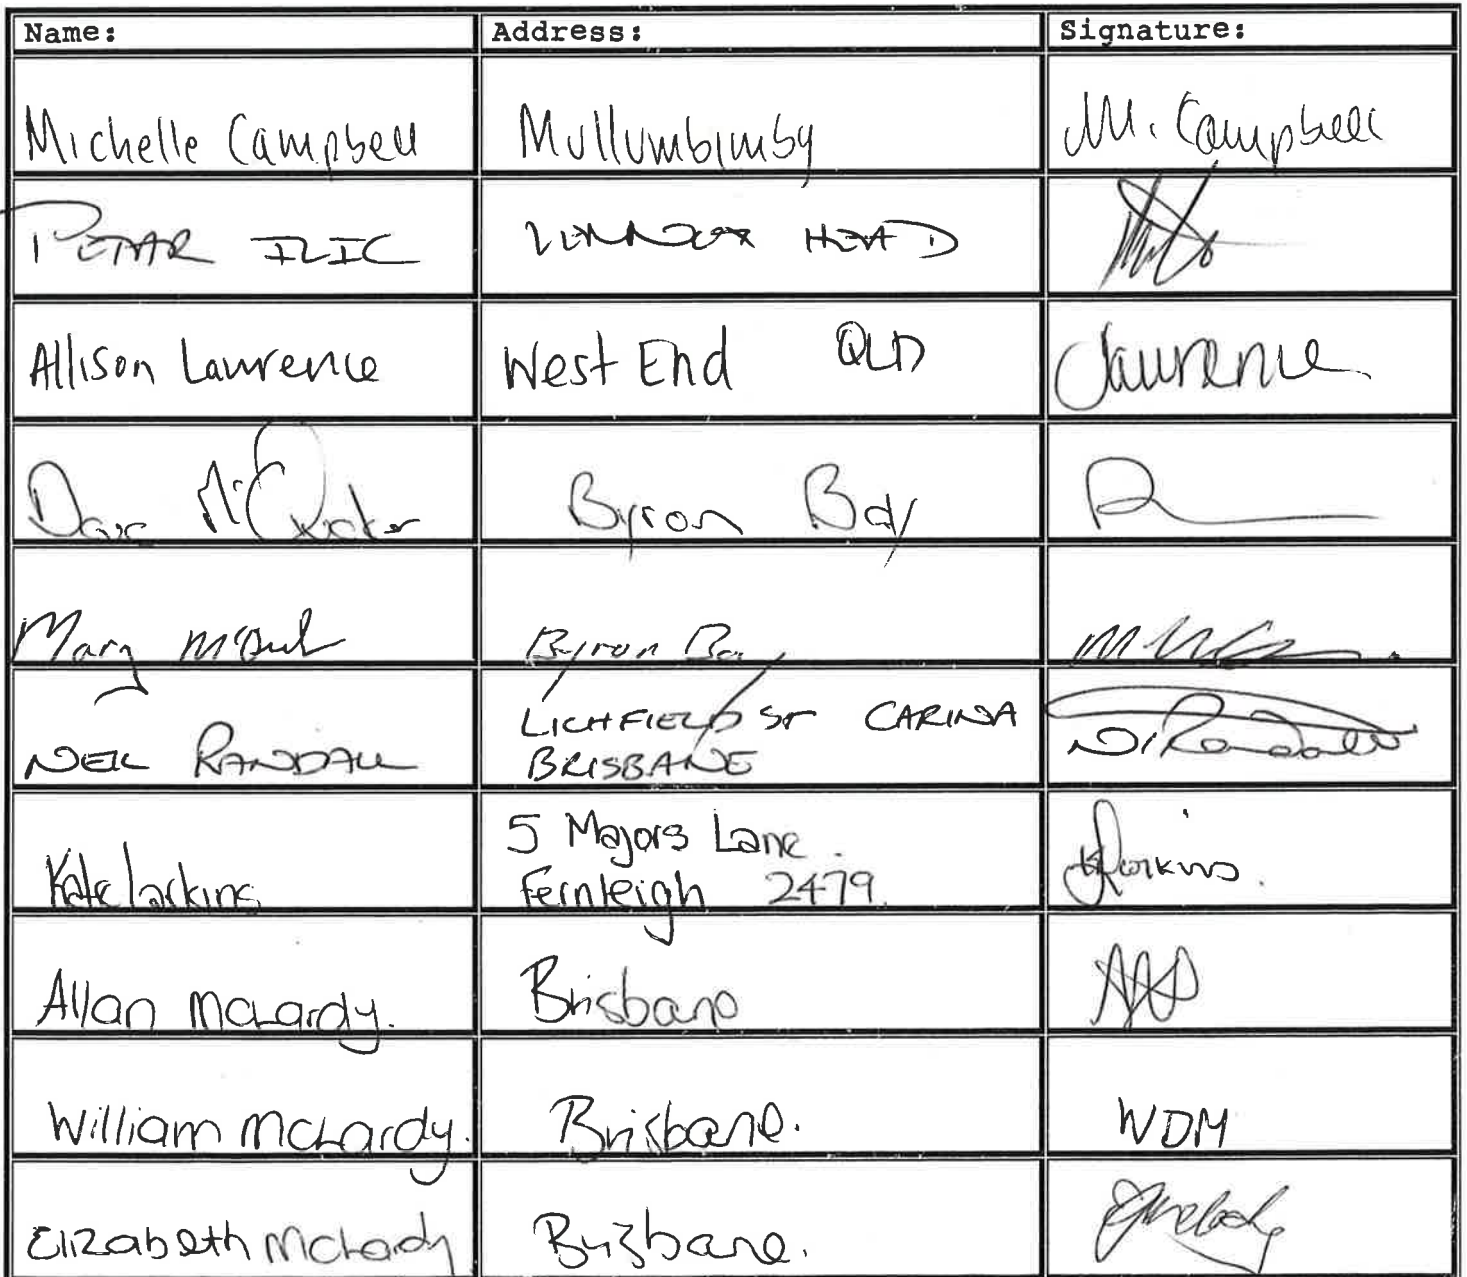 Name: Address: Signature:
Michelle Campbell Mullumbimby M. Campbell
PETAR ILIC LENNOX HEAD
Allison Lawrence West End QLD Lawrence
Dave Byron Bay
Mary Byron Bay
NEIL RANDALL LICHFIELD ST CARINA
BRISBANE
N Randall
Kate Larkins 5 Majors Lane.
Fernleigh 2479.
KLarkins.
Allan McLardy. Brisbane
William McLardy. Brisbane. WDM
Elizabeth McLardy Brisbane.